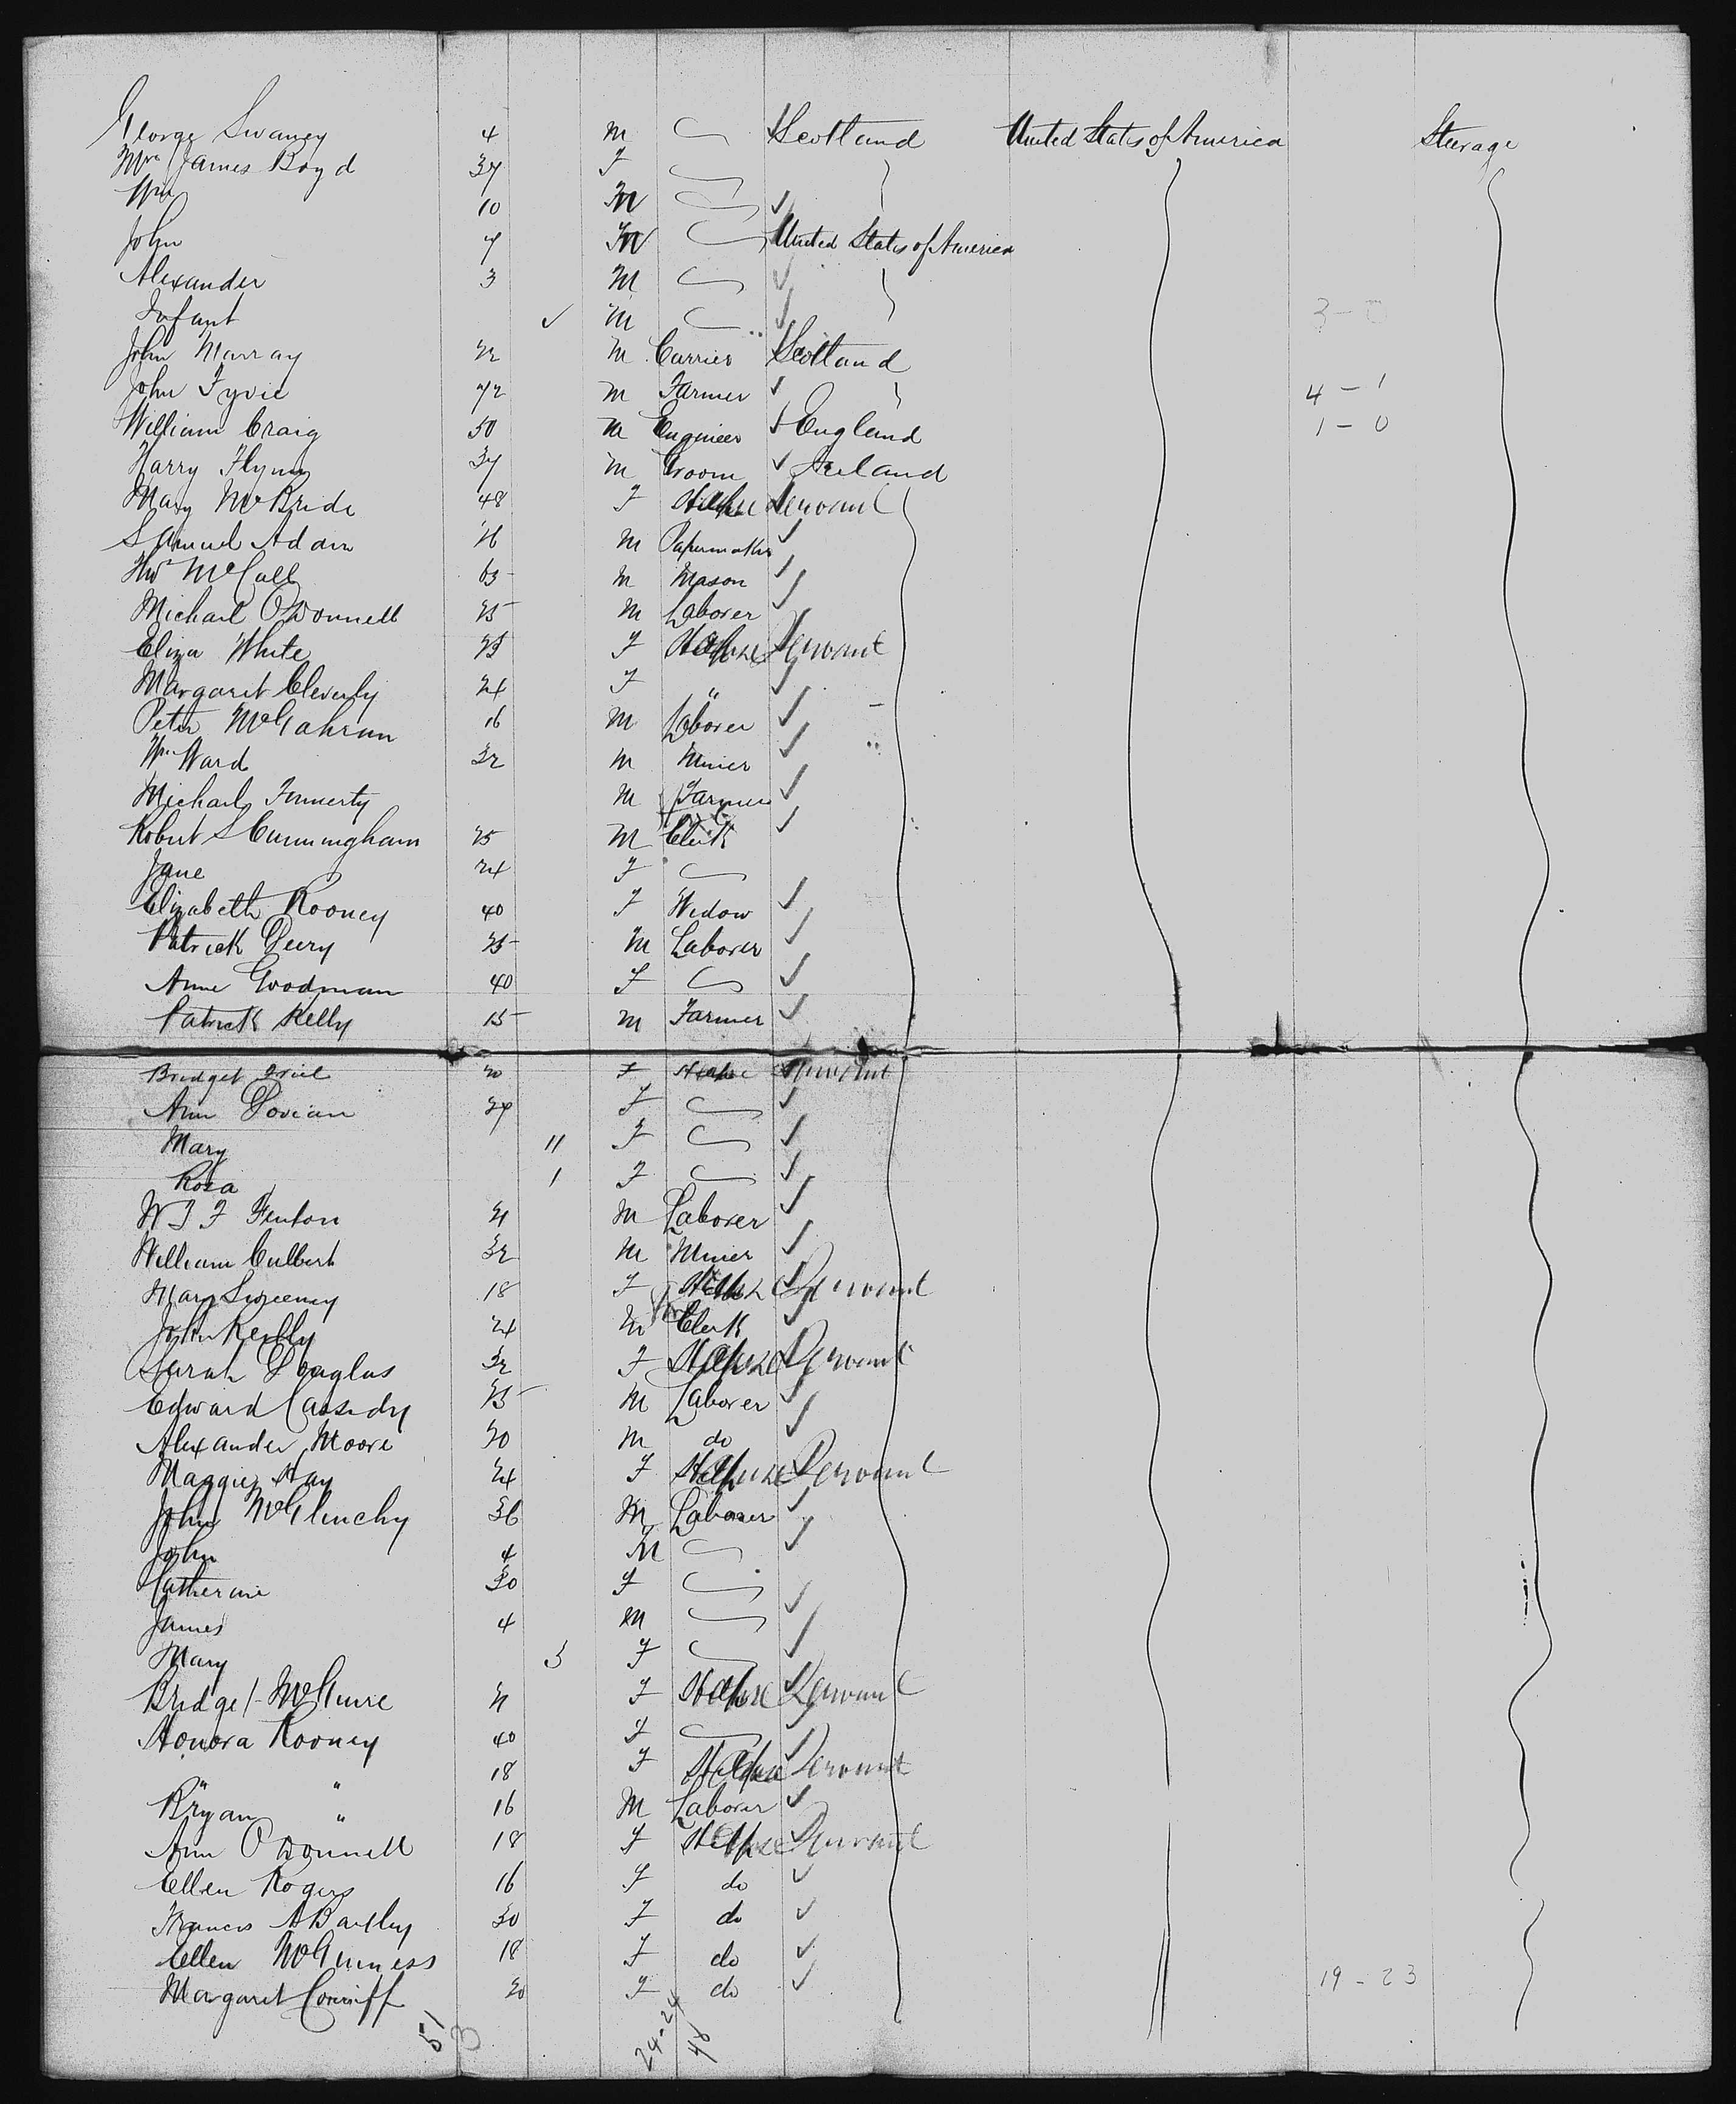 George Swaney 4 m Scotland United States of America Steerage
Mrs James Boyd 34 F
Wm 10 M
John 7 M United States of America
Alexander 3 M
Infant M
3-0
John Murray 22 M Currier Scotland
John Fyvie 42 M Farmer
4-1
William Craig 50 M Engineer England
1-0
Harry Flynn 34 M Groom Ireland
Mary McBride 48 F House Servant
Samuel Adair M Papermaker
McCall 63 M Mason
Michael O'Donnell 25 M Laborer
Eliza White F House Servant
Margaret Cleverly 24 F "
Peter McGahran 16 M Laborer
Wm Ward 32 M Miner
Michael Finnerty M Farmer
Robert S Cunningham 25 M Clerk
Jane 24 F
Elizabeth Rooney 40 F Widow
Patrick Deery 25 M Laborer
Anne Goodman 40 F
Patrick Kelly 15 M Farmer
Bridget Friel 20 F House Servant
Ann F
Mary 11 F
Rosa 1 F
Fenton 21 M Laborer
William Culbert 32 M Miner
Mary Sweeney 18 F House Servant
John Reilly 24 M Clerk
Sarah Douglas 32 F House Servant
Edward Cassidy 25 M Laborer
Alexander Moore 20 M do
Maggie Hay 24 F House Servant
John McGlinchy 36 M Laborer
John 4 M
Catherine 30 F
James 4 M
Mary 3 F
Bridget McGuire 21 F House Servant
Honora Rooney 40 F
" " 18 F House Servant
Bryan " 16 M Laborer
Ann O'Donnell 18 F House Servant
Ellen Rogers 16 F do
Francis A Bartley 30 F do
Ellen McGuiness 18 F do
Margaret Conniff 20 F do
19-23
51
3
24-24
48